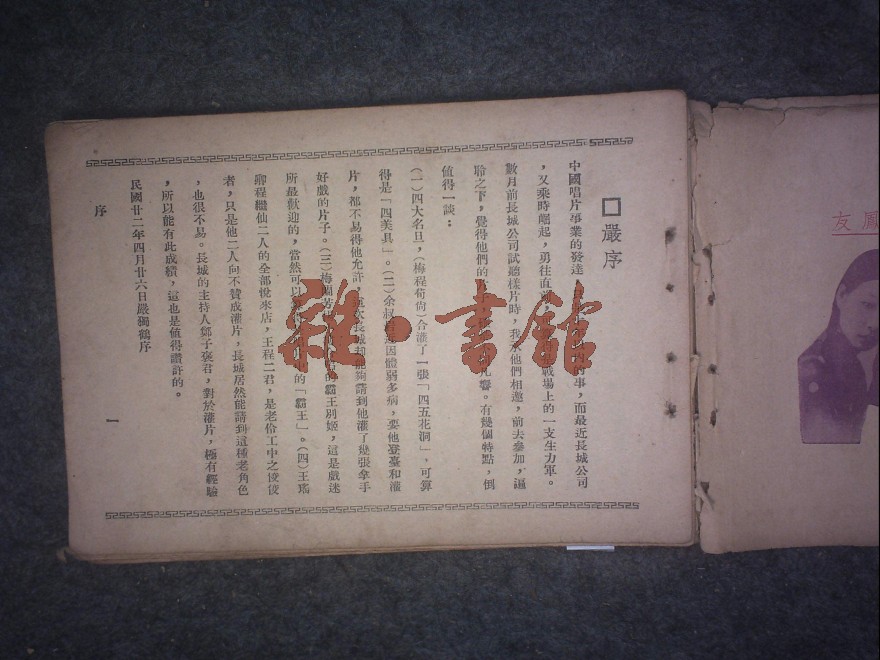 □嚴序
中國唱片事業的發達，的事，而最近長城公司
，又乘時崛起，勇往直戰場上的一支生力軍。
數月前長城公司試聽樣片時，我承他們相邀，前去參加，謳
聆之下，覺得他們的凡響。有幾個特點，倒
值得一談：
（一）四大名旦，（梅程荀尚）合灌了一張「四五花洞」，可算
得是「四美具」。（二）余叔因體弱多病，要他登臺和灌
片，都不易得他允許，這次長城却能夠請到他灌了幾張拿手
好戲的片子。（三）梅蘭芳的霸王別姬，這是戲迷
所最歡迎的，當然可以的「霸王」。（四）王瑤
卿程繼仙二人的全部悅來店，王程二君，是老伶工中之佼佼
者，只是他二人向不贊成灌片，長城居然能請到這種老角色
，也很不易。長城的主持人鄭子褒君，對於灌片，極有經驗
，所以能有此成績，這也是值得讚許的。
民國廿二年四月廿六日嚴獨鶴序
序
一
友鳳
雜·書館